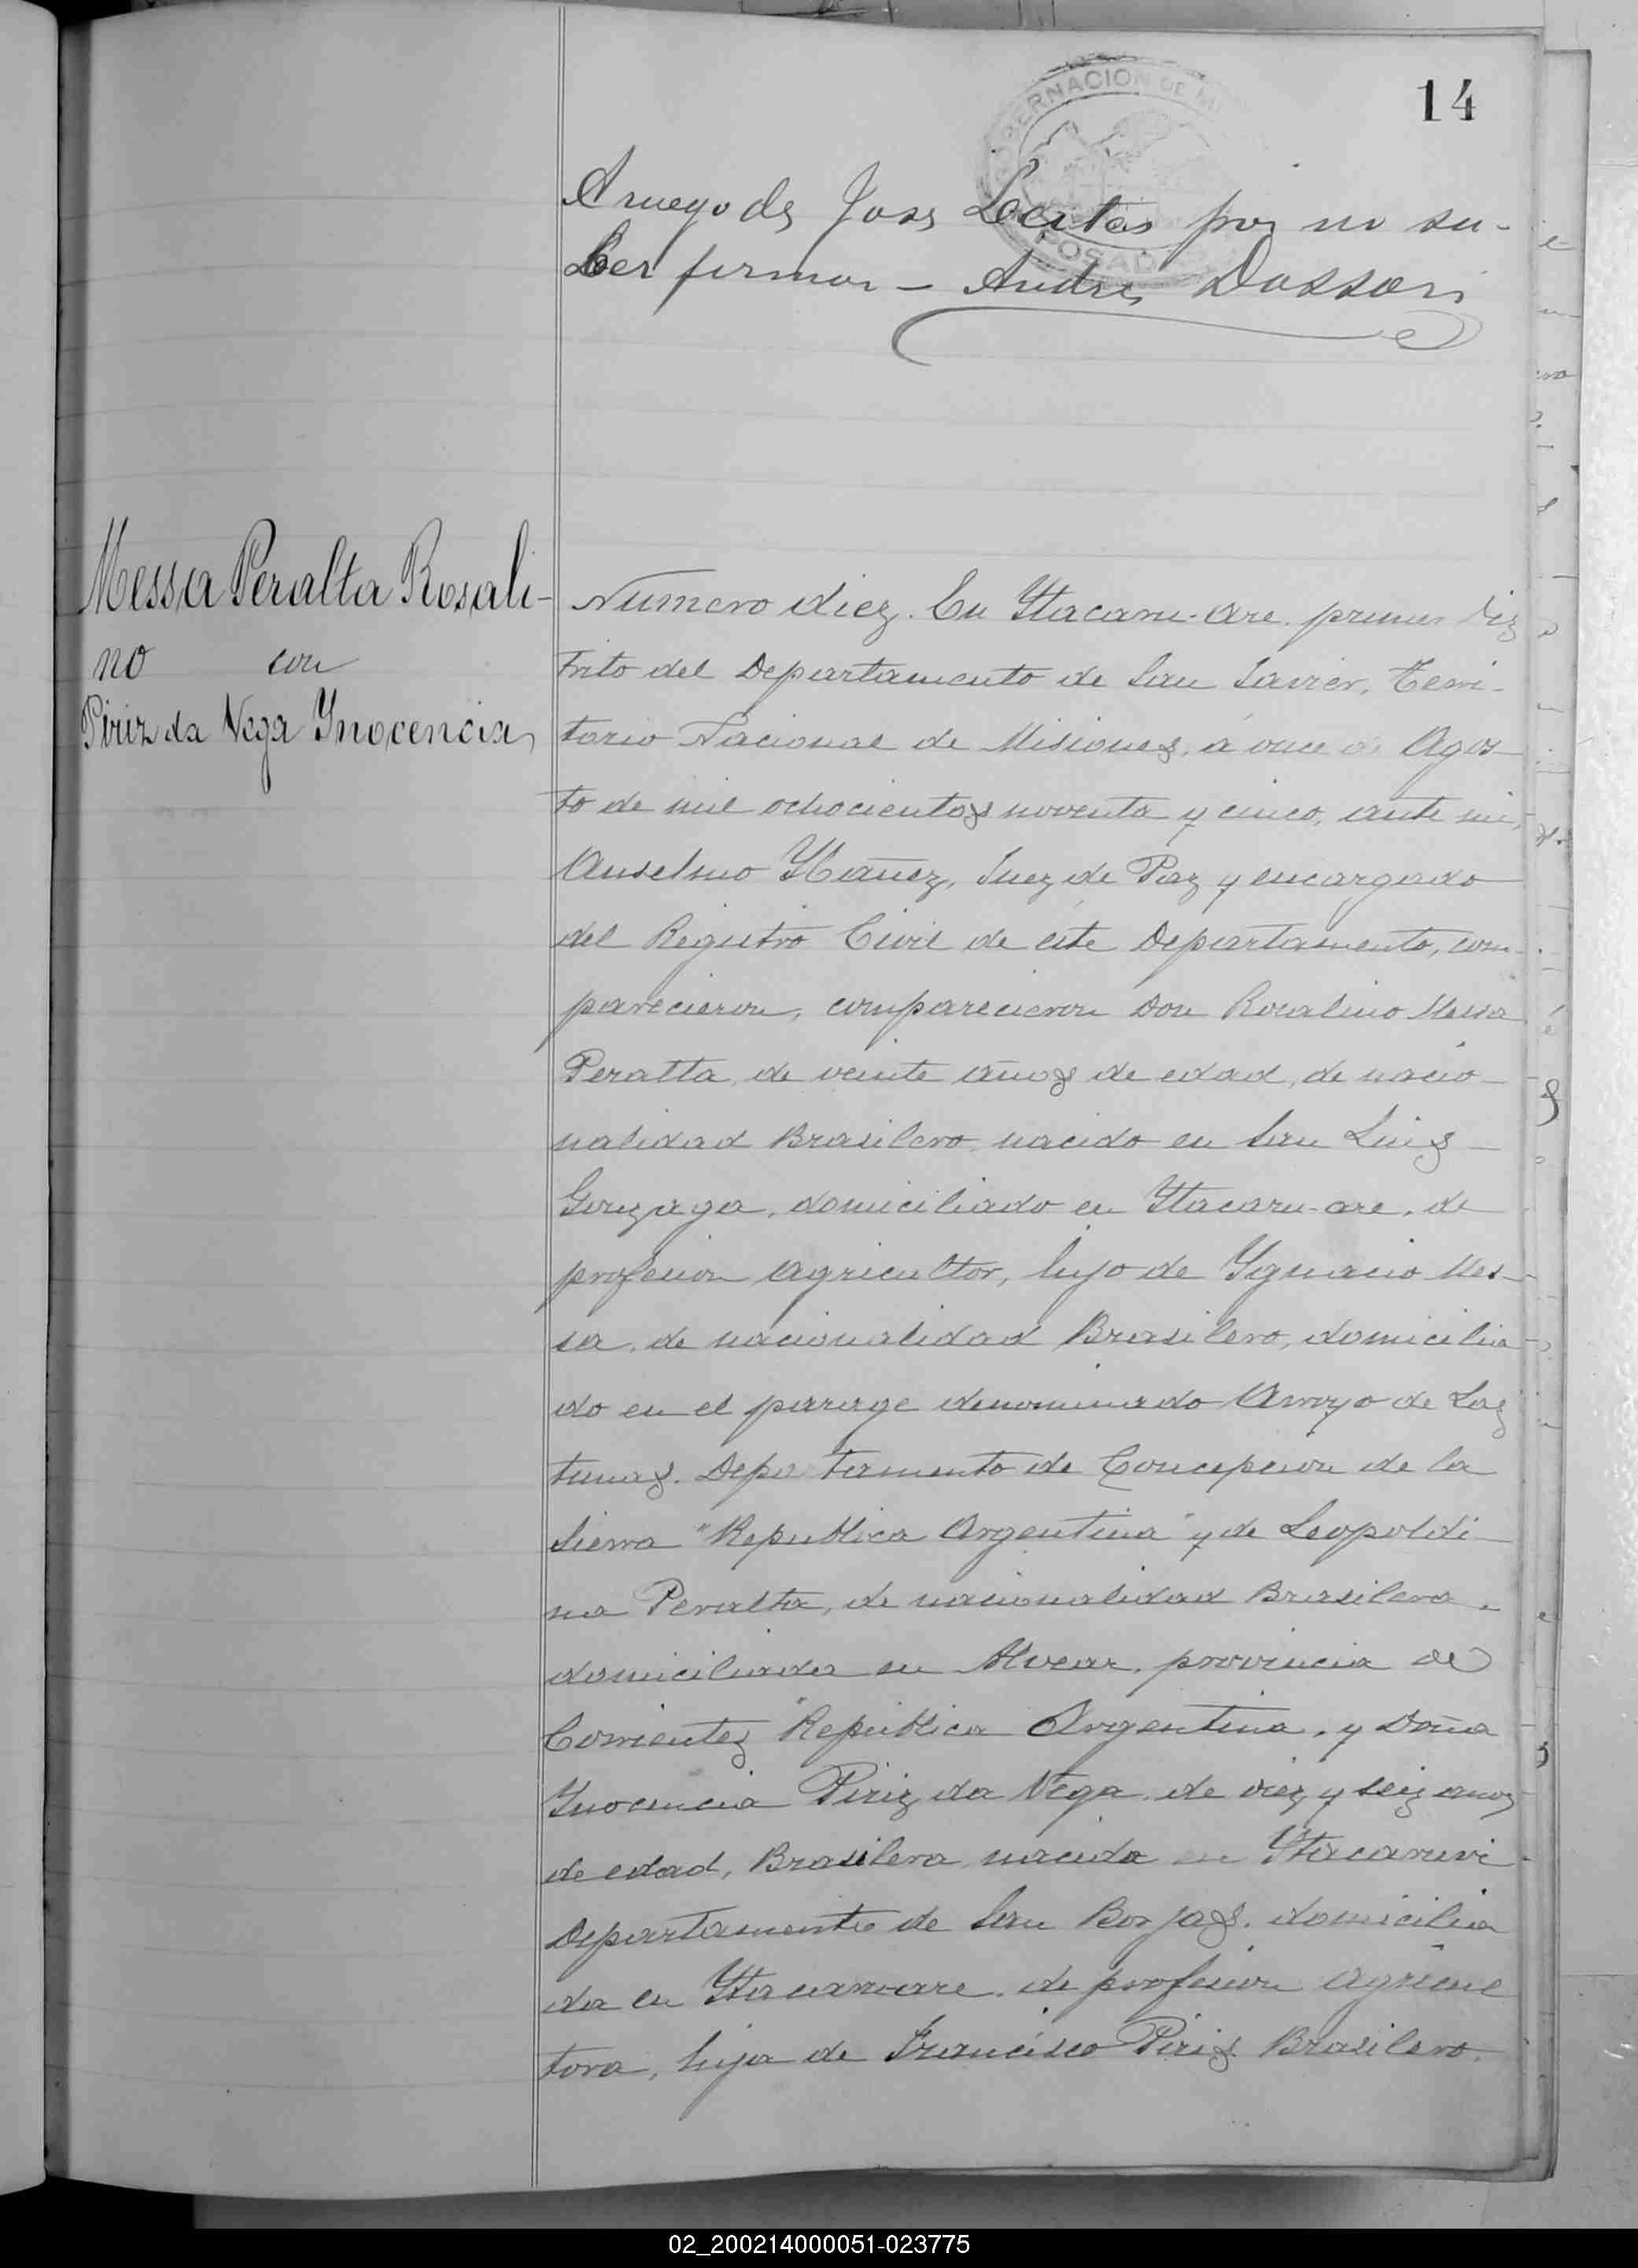 14
GOBERNACION DE MI
POSADAS
A ruego de Jose Leites por no sa-
ber firmar — Andres Dasson
Messa Peralta Rosali-
no con
Piriz da Vega Ynocencia
Numero diez. En Ytacaru-are. primer Diz
trito del Departamento de San Javier, Terri-
torio Nacional de Misiones, á once de Agos
to de mil ochocientos noventa y cinco, ante mi,
Anselmo Ybañez, Juez de Paz y encargado
del Registro Civil de éste Departamento, com-
parecieron, comparecieron Don Rosalino Messa
Peralta, de veinte años de edad, de nacio-
nalidad Brasilero, nacido en San Luis
Gonzaga, domiciliado en Ytacaru-are, de
profesion Agricultor, hijo de Ygnacio Mes-
sa, de nacionalidad Brasilero, domicilia-
do en el parage denominado Arroyo de Las
tunas. Departamento de Concepcion de la
Sierra "Republica Argentina" y de Leopoldi-
na Peralta, de nacionalidad Brasilera,
domiciliada en Alvear, provincia de
Corrientes "Republica Argentina, y Doña
Ynocencia Piriz da Vega de diez y seiz años
de edad, Brasilera nacida en Ytacaruvi
Departamento de San Borjas. domicilia
da en Ytacaruare. de profesion Agricul
tora, hija de Francisco Piris Brasilero.
02_200214000051-023775